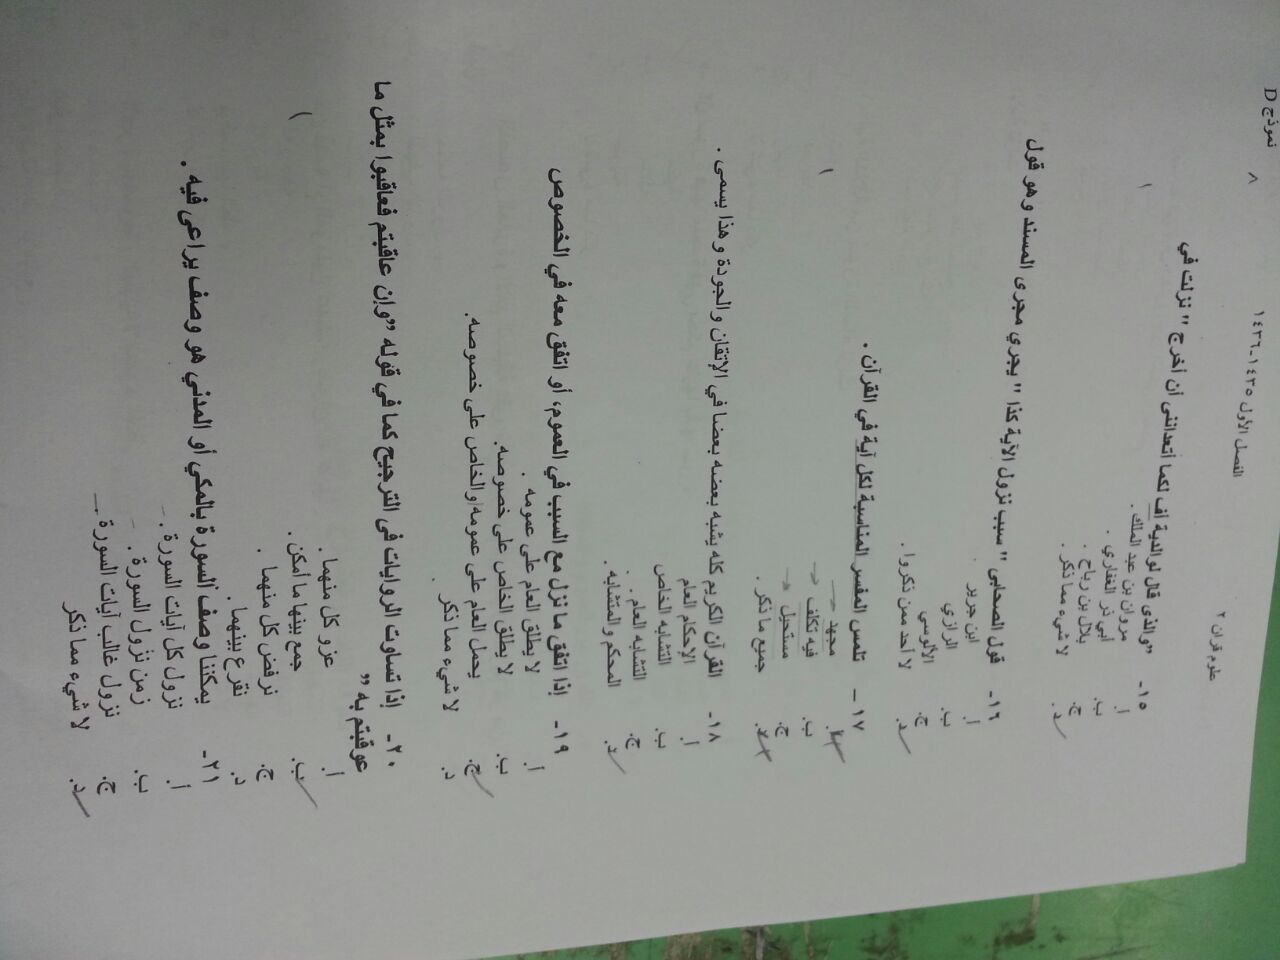 علوم قرآن ٢ الفصل الأول ١٤٣٥-١٤٣٦ ٨ نموذج D
١٥- "والذي قال لوالدية أف لكما أتعدانني أن أخرج" نزلت في
أ. مروان بن عبد الملك.
ب. أبي ذر الغفاري .
ج. بلال بن رباح .
د. لا شيء مما ذكر .
١٦- قول الصحابي "سبب نزول الآية كذا" يجري مجرى المسند وهو قول
أ. ابن جرير
ب. الرازي
ج. الألوسي
د. لا أحد ممن ذكروا .
١٧- تلمس المفسر المناسبة لكل آية في القرآن .
أ. مجهد
ب. فيه تكلف
ج. مستحيل
د. جميع ما ذكر .
١٨- القرآن الكريم كله يشبه بعضه بعضا في الإتقان والجودة وهذا يسمى .
أ. الإحكام العام
ب. التشابه الخاص
ج. التشابه العام .
د. المحكم والمتشابه .
١٩- إذا اتفق ما نزل مع السبب في العموم، أو اتفق معه في الخصوص
أ. لا يطلق العام على عمومه .
ب. لا يطلق الخاص على خصوصه.
ج. يحمل العام على عمومه/والخاص على خصوصه.
د. لا شيء مما ذكر .
٢٠- إذا تساوت الروايات في الترجيح كما في قوله "وإن عاقبتم فعاقبوا بمثل ما
عوقبتم به"
أ. عزو كل منهما .
ب. جمع بينها ما أمكن .
ج. نرفض كل منهما .
د. نقرع بينهما .
٢١- يمكننا وصف السورة بالمكي أو المدني هو وصف يراعى فيه .
أ. نزول كل آيات السورة .
ب. زمن نزول السورة .
ج. نزول غالب آيات السورة .
د. لا شيء مما ذكر